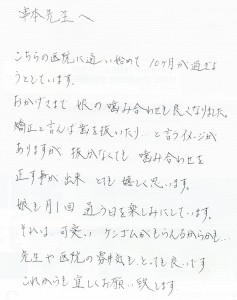 串本先生へ
こちらの医院に通い始めて 10ヶ月が過ぎよ
うとしています。
おかげさまで 娘の噛み合わせも良くなりました。
矯正と言えば歯を抜いたり…と言うイメージが
ありますが 抜かなくても 噛み合わせを
正す事が出来 とても嬉しく思います。
娘も月1回 通う日を楽しみにしています。
それは、可愛い ケシゴムがもらえるからかも…
先生や医院の雰囲気も、とっても良いです
これからも宜しくお願い致します